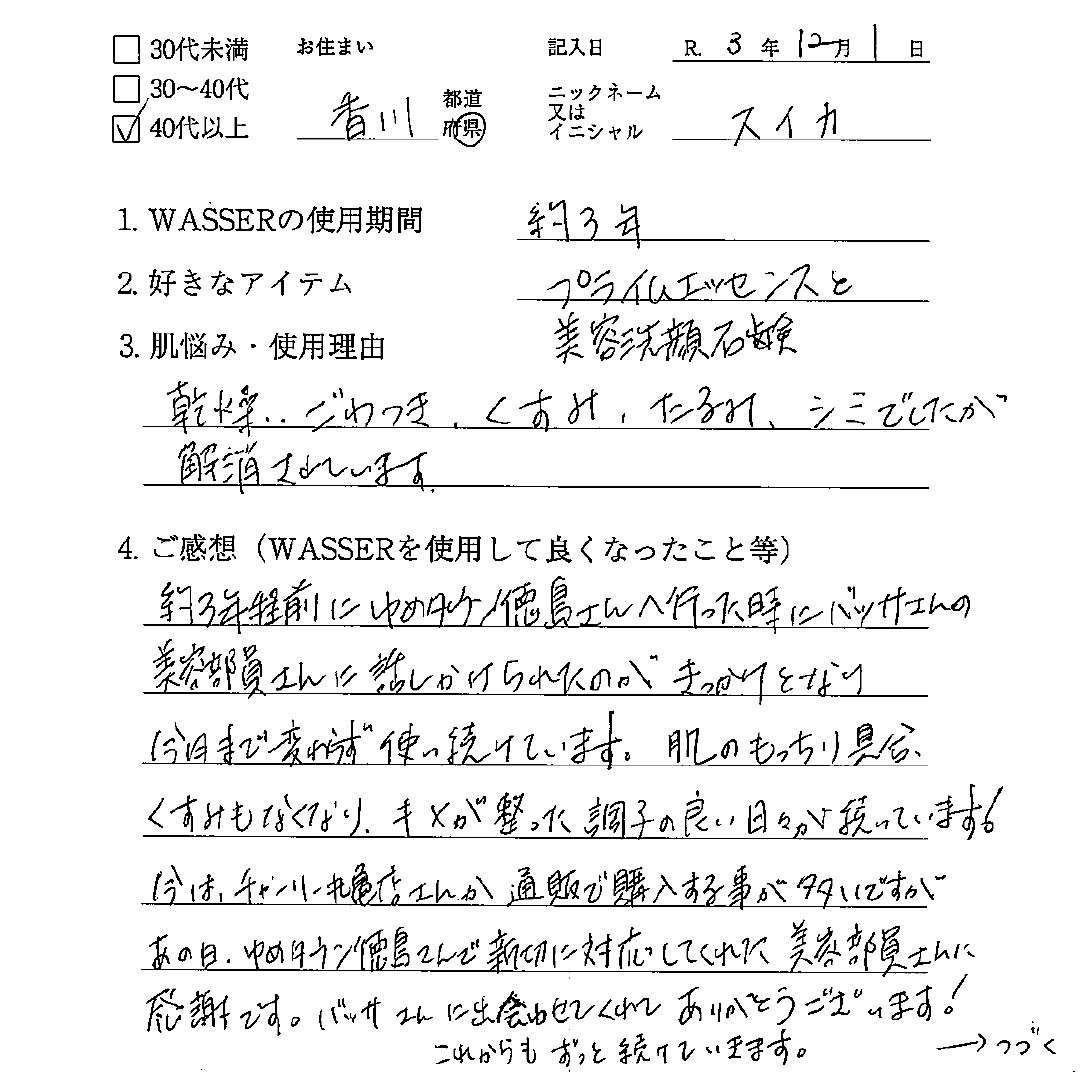 30代未満 お住まい 記入日 R. 3 年 12 月 1 日
30〜40代
40代以上 香川 都道府県 ニックネーム又はイニシャル スイカ
1. WASSERの使用期間 約3年
2. 好きなアイテム プライムエッセンスと
美容洗顔石鹸
3. 肌悩み・使用理由
乾燥、ごわつき、くすみ、たるみ、シミでしたが
解消されています。
4. ご感想（WASSERを使用して良くなったこと等）
約3年程前にゆめタウン徳島さんへ行った時にバッサさんの
美容部員さんに話しかけられたのがきっかけとなり
今日まで変わらず使い続けています。肌のもっちり具合、
くすみもなくなり、キメが整った調子の良い日々が続いています!
今は、チャーリー丸亀店さんか通販で購入する事が多いですが
あの日、ゆめタウン徳島さんで親切に対応してくれた美容部員さんに
感謝です。バッサさんに出会わせてくれてありがとうございます!
これからもずっと続けていきます。 →つづく